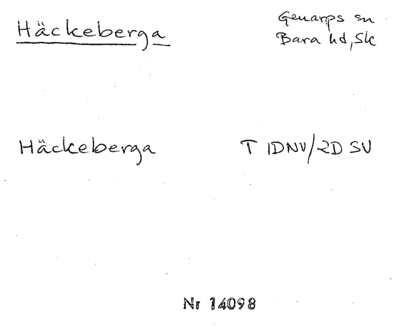 Häckeberga
Genarps sn
Bara hd, Sk
Häckeberga T 1DNV/2D SV
Nr 14098